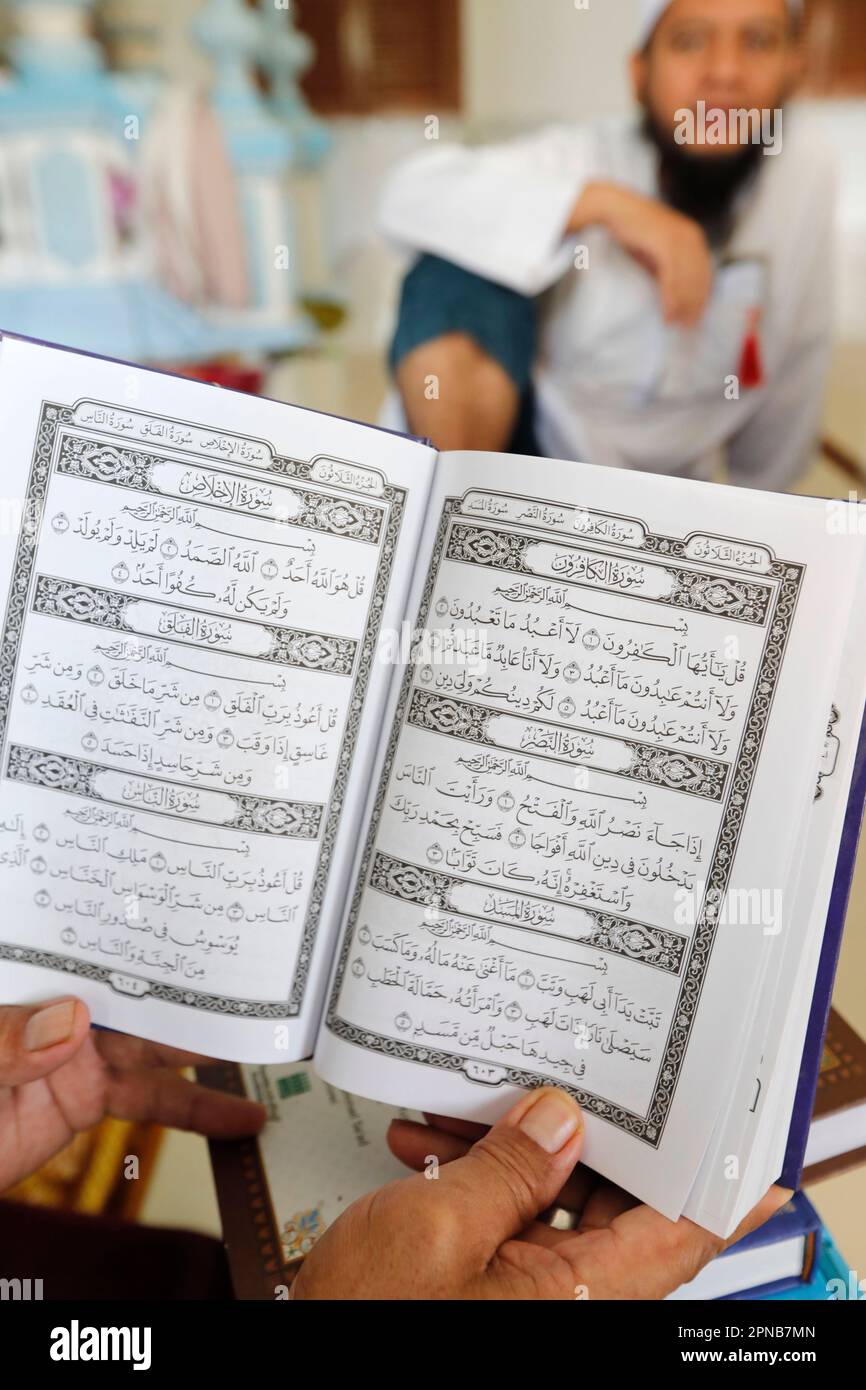 الجُزْءُ الثَّلَاثُونَ
سُورَةُ الكَافِرُونَ سُورَةُ النَّصْرِ سُورَةُ المَسَدِ
سُورَةُ الكَافِرُونَ
بِسْمِ ٱللَّهِ ٱلرَّحْمَٰنِ ٱلرَّحِيمِ
قُلْ يَٰٓأَيُّهَا ٱلْكَٰفِرُونَ ١ لَآ أَعْبُدُ مَا تَعْبُدُونَ ٢
وَلَآ أَنتُمْ عَٰبِدُونَ مَآ أَعْبُدُ ٣ وَلَآ أَنَا۠ عَابِدٌ مَّا عَبَدتُّمْ ٤
وَلَآ أَنتُمْ عَٰبِدُونَ مَآ أَعْبُدُ ٥ لَكُمْ دِينُكُمْ وَلِيَ دِينِ ٦
سُورَةُ النَّصْرِ
بِسْمِ ٱللَّهِ ٱلرَّحْمَٰنِ ٱلرَّحِيمِ
إِذَا جَآءَ نَصْرُ ٱللَّهِ وَٱلْفَتْحُ ١ وَرَأَيْتَ ٱلنَّاسَ
يَدْخُلُونَ فِي دِينِ ٱللَّهِ أَفْوَاجًا ٢ فَسَبِّحْ بِحَمْدِ رَبِّكَ
وَٱسْتَغْفِرْهُ إِنَّهُۥ كَانَ تَوَّابًۢا ٣
سُورَةُ المَسَدِ
بِسْمِ ٱللَّهِ ٱلرَّحْمَٰنِ ٱلرَّحِيمِ
تَبَّتْ يَدَآ أَبِي لَهَبٍ وَتَبَّ ١ مَآ أَغْنَىٰ عَنْهُ مَالُهُۥ وَمَا كَسَبَ ٢
سَيَصْلَىٰ نَارًا ذَاتَ لَهَبٍ ٣ وَٱمْرَأَتُهُۥ حَمَّالَةَ ٱلْحَطَبِ ٤
فِي جِيدِهَا حَبْلٌ مِّن مَّسَدٍۭ ٥
٦٠٣
الجُزْءُ الثَّلَاثُونَ
سُورَةُ الإِخْلَاصِ سُورَةُ الفَلَقِ سُورَةُ النَّاسِ
سُورَةُ الإِخْلَاصِ
بِسْمِ ٱللَّهِ ٱلرَّحْمَٰنِ ٱلرَّحِيمِ
قُلْ هُوَ ٱللَّهُ أَحَدٌ ١ ٱللَّهُ ٱلصَّمَدُ ٢ لَمْ يَلِدْ وَلَمْ يُولَدْ ٣
وَلَمْ يَكُن لَّهُۥ كُفُوًا أَحَدٌۢ ٤
سُورَةُ الفَلَقِ
بِسْمِ ٱللَّهِ ٱلرَّحْمَٰنِ ٱلرَّحِيمِ
قُلْ أَعُوذُ بِرَبِّ ٱلْفَلَقِ ١ مِن شَرِّ مَا خَلَقَ ٢ وَمِن شَرِّ
غَاسِقٍ إِذَا وَقَبَ ٣ وَمِن شَرِّ ٱلنَّفَّٰثَٰتِ فِي ٱلْعُقَدِ ٤
وَمِن شَرِّ حَاسِدٍ إِذَا حَسَدَ ٥
سُورَةُ النَّاسِ
بِسْمِ ٱللَّهِ ٱلرَّحْمَٰنِ ٱلرَّحِيمِ
قُلْ أَعُوذُ بِرَبِّ ٱلنَّاسِ ١ مَلِكِ ٱلنَّاسِ ٢ إِلَٰهِ
ٱلنَّاسِ ٣ مِن شَرِّ ٱلْوَسْوَاسِ ٱلْخَنَّاسِ ٤ ٱلَّذِي
يُوَسْوِسُ فِي صُدُورِ ٱلنَّاسِ ٥
مِنَ ٱلْجِنَّةِ وَٱلنَّاسِ ٦
٦٠٤
alamy
Image ID: 2PNB7MN
www.alamy.com